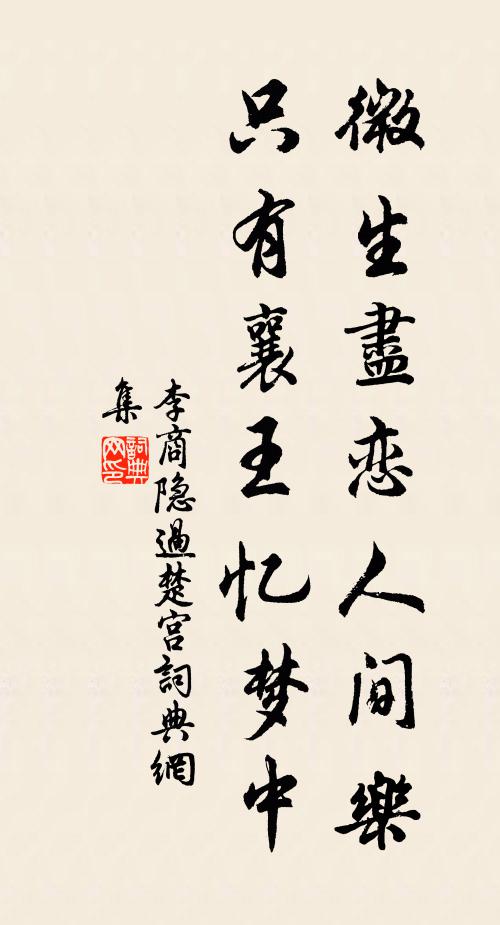 微生盡恋人间樂
只有襄王忆梦中
李商隐過楚宫詞典網
集
詞典網印